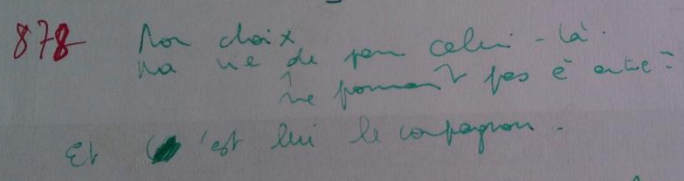 878 Mon choix
Ma vie de pour celui-là.
ne pouvant pas être
Et c'est lui le compagnon.